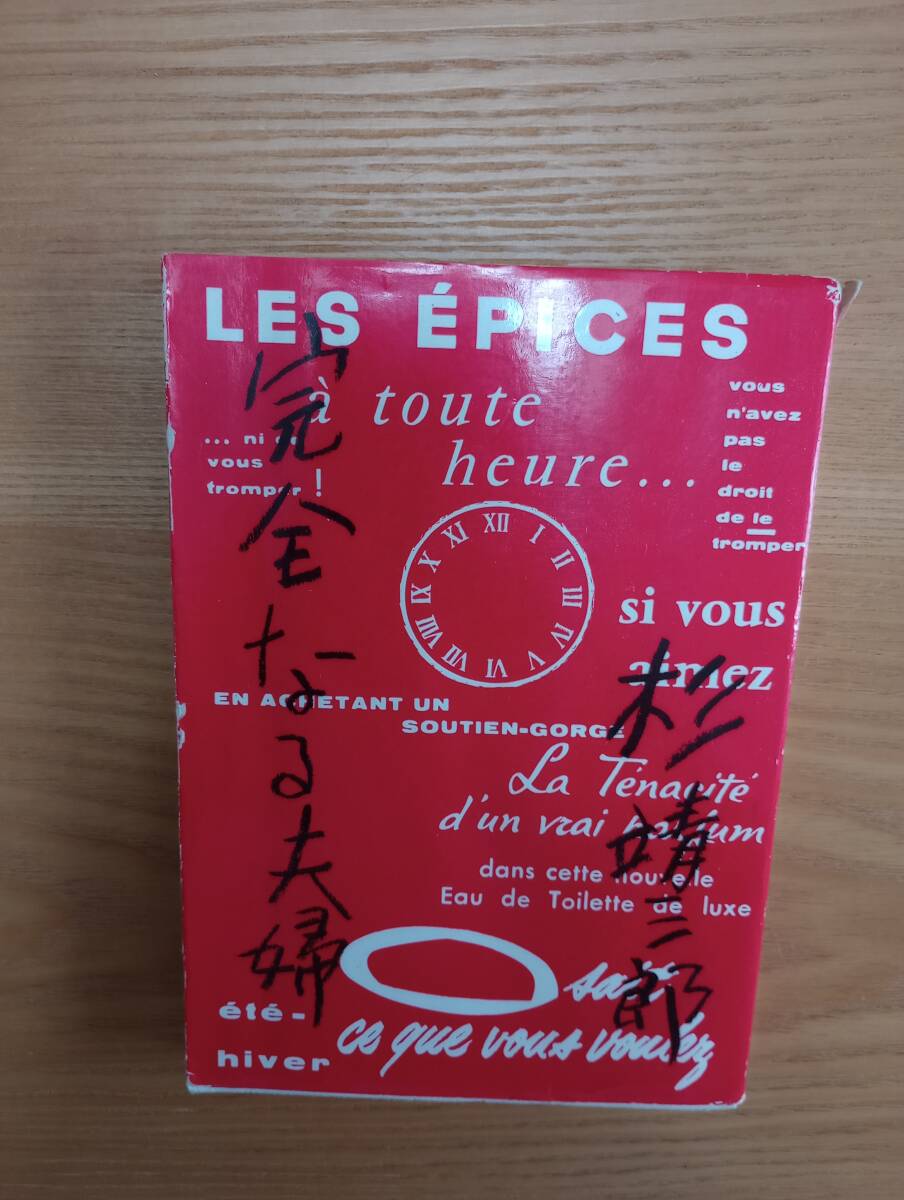 LES ÉPICES
à toute
heure...
... ni
vous
tromper !
vous
n'avez
pas
le
droit
de le
tromper
XII
I
II
III
IV
V
VI
VII
VIII
IX
X
XI
si vous
aimez
EN ACHETANT UN
SOUTIEN-GORGE
La Ténacité
d'un vrai parfum
dans cette nouvelle
Eau de Toilette de luxe
sait
ce que vous voulez
été-
hiver
完全なる夫婦
杉靖三郎